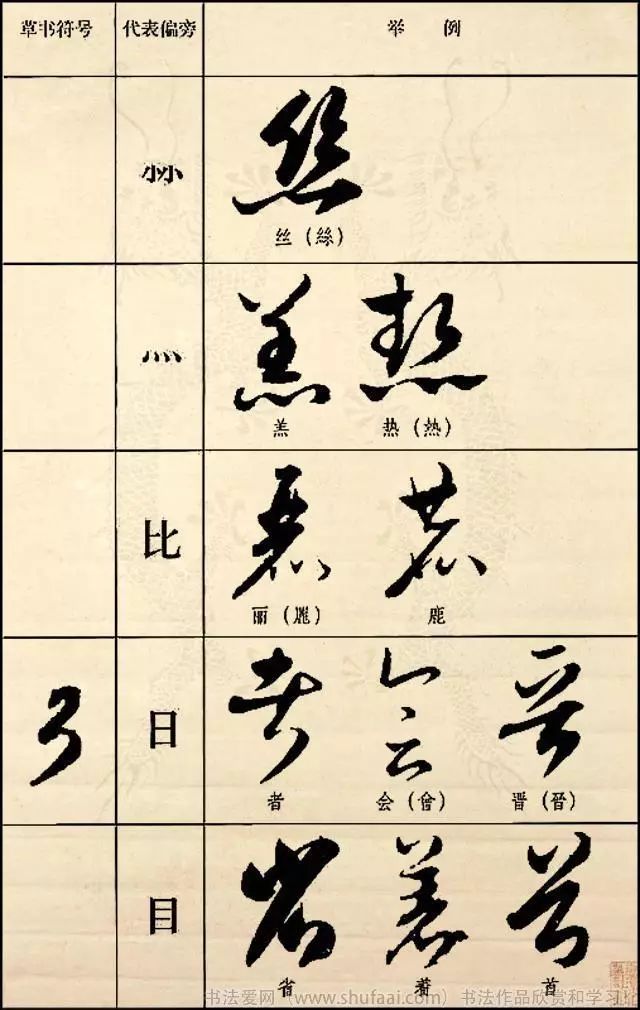 草书符号 代表偏旁 举例
丝（絲）
灬
羔 热（熱）
比
丽（麗） 鹿
日
者 会（會） 晋（晉）
目
省 着 首
书法爱网（www.shufaai.com）书法作品欣赏和学习